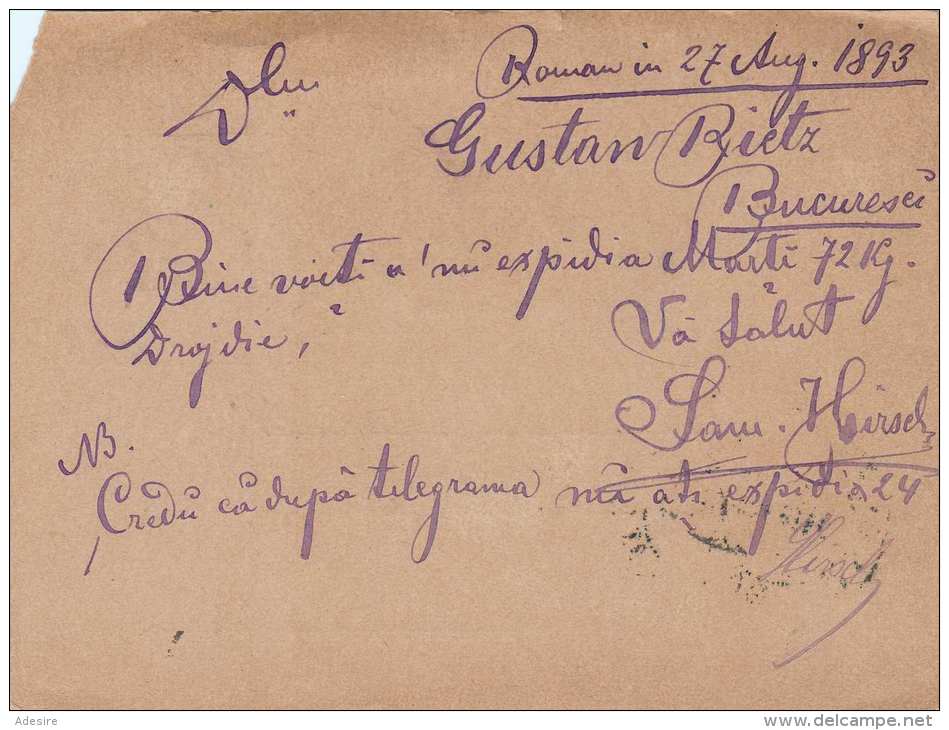 Roman in 27 Aug. 1893
Dlui
Gustav Rietz
Bucuresci
Bine voiti a 'mi expidia Marti 72 Kg.
Drojdie,
Vă sălut
Sam. Hirsch
NB.
Credŭ că după telegrama mi ati expidia 24
Hirsch
Adesire
www.delcampe.net